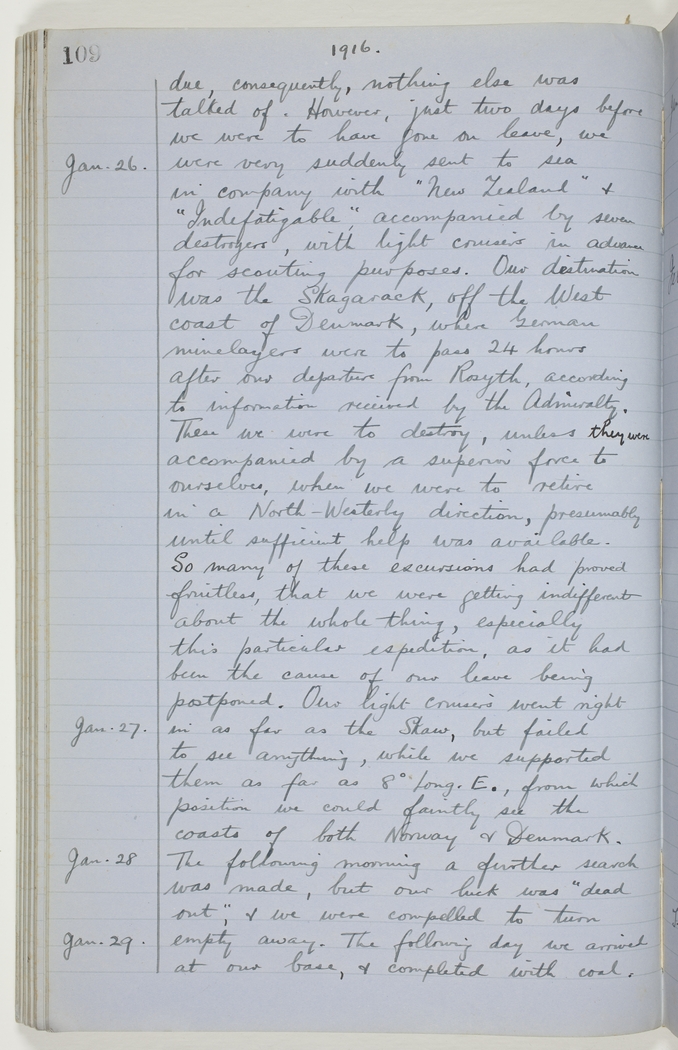 109
1916.
due, consequently, nothing else was
talked of. However, just two days before
we were to have gone on leave, we
Jan. 26. were very suddenly sent to sea
in company with "New Zealand" &
"Indefatigable", accompanied by seven
destroyers, with light cruisers in advance
for scouting purposes. Our destination
was the Skagarack, off the West
coast of Denmark, where German
minelayers were to pass 24 hours
after our departure from Rosyth, according
to information received by the Admiralty.
These we were to destroy, unless they were
accompanied by a superior force to
ourselves, when we were to retire
in a North-Westerly direction, presumably
until sufficient help was available.
So many of these excursions had proved
fruitless, that we were getting indifferent
about the whole thing, especially
this particular expedition, as it had
been the cause of our leave being
postponed. Our light cruisers went right
Jan. 27. in as far as the Skaw, but failed
to see anything, while we supported
them as far as 8° Long. E., from which
position we could faintly see the
coasts of both Norway & Denmark.
Jan. 28 The following morning a further search
was made, but our luck was "dead
out", & we were compelled to turn
Jan. 29. empty away. The following day we arrived
at our base, & completed with coal.